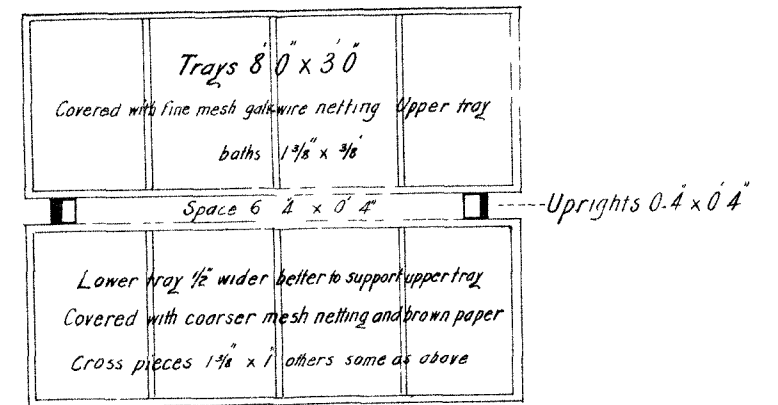 Trays 8' 0" x 3' 0"
Covered with fine mesh galv wire netting Upper tray
baths 1 3/8" x 3/8"
Space 6 4" x 0' 4"
Uprights 0.4" x 0' 4"
Lower tray 1/2" wider better to support upper tray
Covered with coarser mesh netting and brown paper
Cross pieces 1 3/8" x 1" others same as above